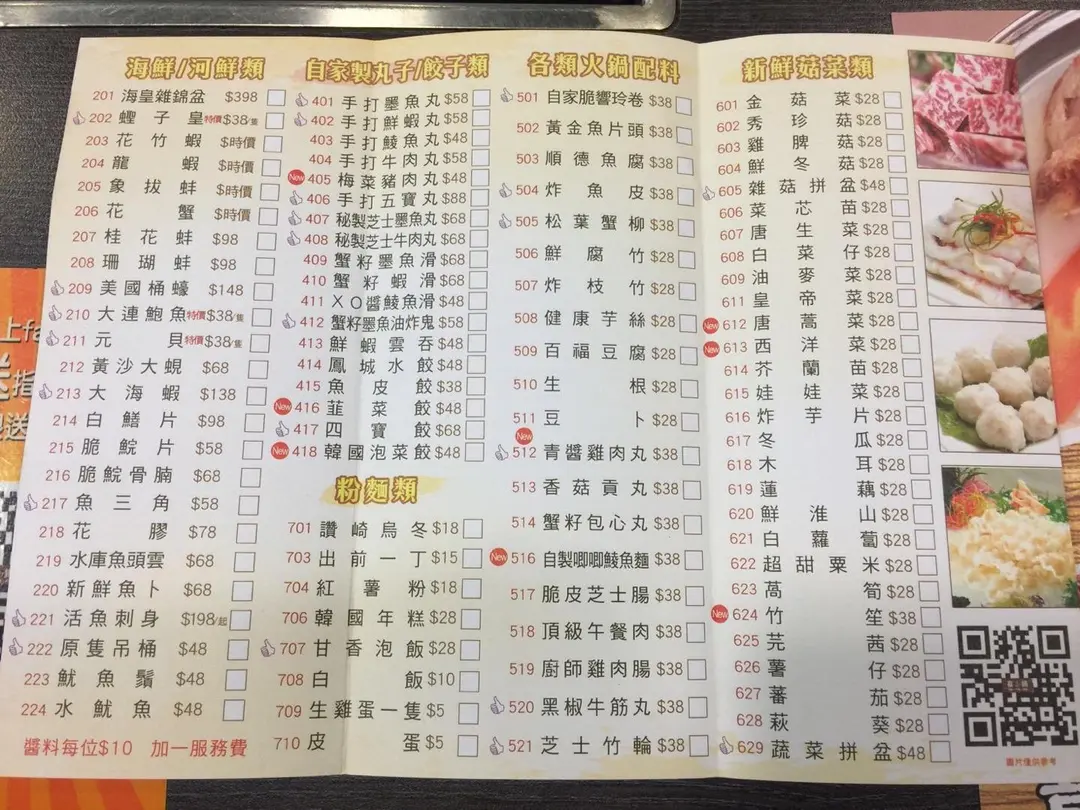 海鮮/河鮮類
201 海皇雜錦盆 $398
202 蟶子皇 特價$38/隻
203 花竹蝦 $時價
204 龍蝦 $時價
205 象拔蚌 $時價
206 花蟹 $時價
207 桂花蚌 $98
208 珊瑚蚌 $98
209 美國桶蠔 $148
210 大連鮑魚 特價$38/隻
211 元貝 特價$38/隻
212 黃沙大蜆 $68
213 大海蝦 $138
214 白鱔片 $98
215 脆鯇片 $58
216 脆鯇骨腩 $68
217 魚三角 $58
218 花膠 $78
219 水庫魚頭雲 $68
220 新鮮魚卜 $68
221 活魚刺身 $198/起
222 原隻吊桶 $48
223 魷魚鬚 $48
224 水魷魚 $48
醬料每位$10 加一服務費
自家製丸子/餃子類
401 手打墨魚丸 $58
402 手打鮮蝦丸 $58
403 手打鯪魚丸 $48
404 手打牛肉丸 $58
New 405 梅菜豬肉丸 $48
406 手打五寶丸 $88
407 秘製芝士墨魚丸 $68
408 秘製芝士牛肉丸 $68
409 蟹籽墨魚滑 $68
410 蟹籽蝦滑 $68
411 XO醬鯪魚滑 $48
412 蟹籽墨魚油炸鬼 $58
413 鮮蝦雲吞 $48
414 鳳城水餃 $48
415 魚皮餃 $38
New 416 韮菜餃 $48
417 四寶餃 $68
New 418 韓國泡菜餃 $48
粉麵類
701 讚崎烏冬 $18
703 出前一丁 $15
704 紅薯粉 $18
706 韓國年糕 $28
707 甘香泡飯 $28
708 白飯 $10
709 生雞蛋一隻 $5
710 皮蛋 $5
各類火鍋配料
501 自家脆響玲卷 $38
502 黃金魚片頭 $38
503 順德魚腐 $38
504 炸魚皮 $38
505 松葉蟹柳 $38
506 鮮腐竹 $28
507 炸枝竹 $28
508 健康芋絲 $28
509 百福豆腐 $28
510 生根 $28
511 豆卜 $28
New 512 青醬雞肉丸 $38
513 香菇貢丸 $38
514 蟹籽包心丸 $38
New 516 自製唧唧鯪魚麵 $38
517 脆皮芝士腸 $38
518 頂級午餐肉 $38
519 廚師雞肉腸 $38
520 黑椒牛筋丸 $38
521 芝士竹輪 $38
新鮮菇菜類
601 金菇菜 $28
602 秀珍菇 $28
603 雞脾菇 $28
604 鮮冬菇 $28
605 雜菇拼盆 $48
606 菜芯苗 $28
607 唐生菜 $28
608 白菜仔 $28
609 油麥菜 $28
611 皇帝菜 $28
New 612 唐蒿菜 $28
New 613 西洋菜 $28
614 芥蘭苗 $28
615 娃娃菜 $28
616 炸芋片 $28
617 冬瓜 $28
618 木耳 $28
619 蓮藕 $28
620 鮮淮山 $28
621 白蘿蔔 $28
622 超甜粟米 $28
623 萵筍 $28
New 624 竹笙 $38
625 芫茜 $28
626 薯仔 $28
627 蕃茄 $28
628 萩葵 $28
629 蔬菜拼盆 $48
圖片僅供參考